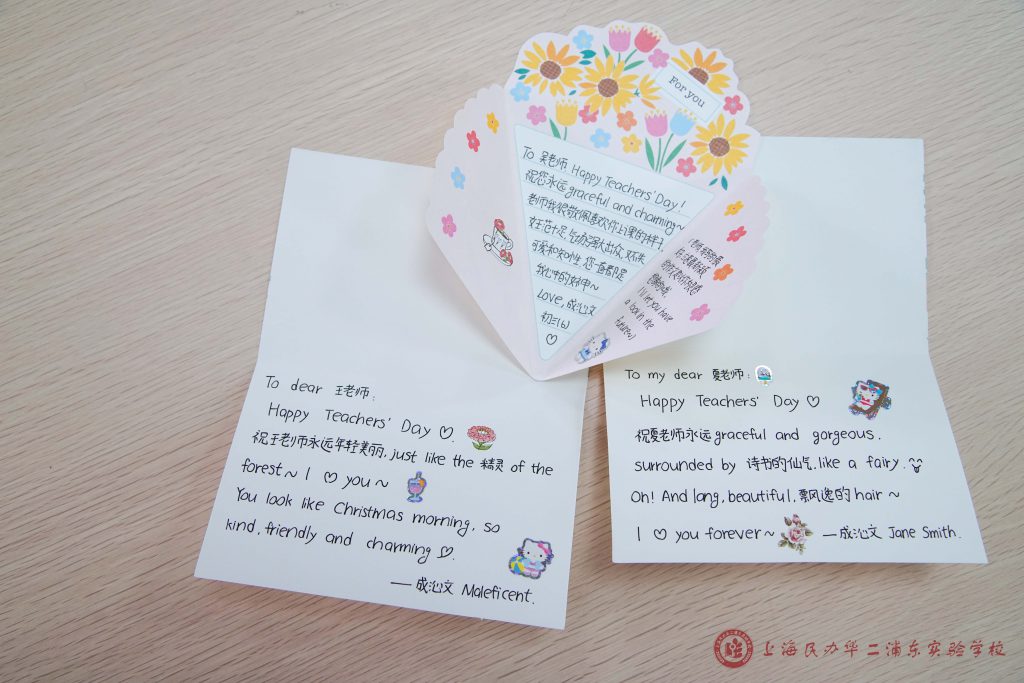 For you
To 吴老师 Happy Teachers' Day!
祝您永远 graceful and charming~
老师我很敬佩喜欢你上课的样子,
女王范十足,气场强大出众,不失
可爱和知性,您一直都是
我心中的女神~
Love, 成沁文
初三(6)
I'll let you have
a box in the
future(w)
To dear 王老师:
Happy Teachers' Day ♡.
祝王老师永远年轻美丽, just like the 精灵 of the
forest~ I ♡ you~
You look like Christmas morning, so
kind, friendly and charming ♡.
——成沁文 Maleficent.
To my dear 夏老师:
Happy Teachers' Day ♡
祝夏老师永远graceful and gorgeous,
surrounded by 诗书的仙气, like a fairy.
Oh! And long, beautiful, 飘逸的 hair ~
I ♡ you forever~ —成沁文 Jane Smith.
上海民办华二浦东实验学校